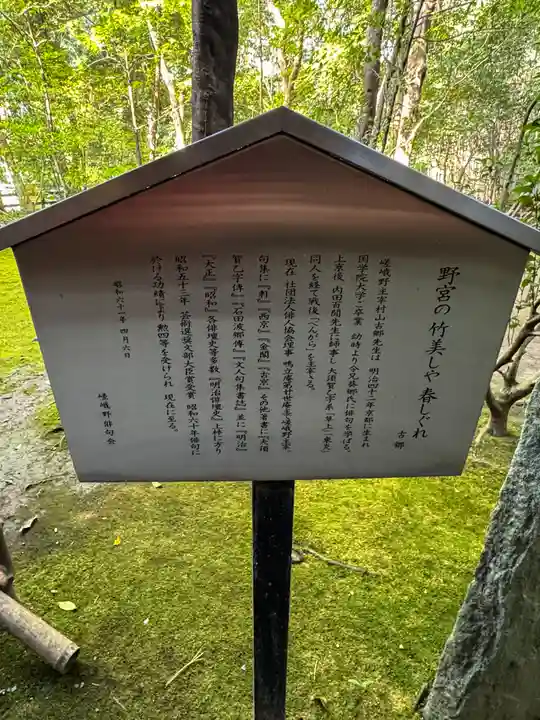 野宮の 竹美しや 春しぐれ
古郷
嵯峨野主宰村山古郷先生は 明治四十二年京都に生まれ
国学院大学ご卒業 幼時より令兄葵郷氏に俳句を学ばる。
上京後、内田百閒先生に師事し 大須賀乙字系「草上」「東炎」
同人を経て戦後「べんがら」を主宰さる。
現在 社団法人俳人協会理事 鴫立庵第廿世庵主 嵯峨野主宰。
句集に『軒』『西京』『金閣』『古京』その他著書に『大須
賀乙字傳』『石田波郷傳』『文人句集書誌』並に『明治』
『大正』『昭和』各俳壇史等多数『明治俳壇史』上梓に方り
昭和五十三年 芸術選奨文部大臣賞受賞 昭和六十年俳句に
於ける功績により 勲四等を受けられ 現在に至る。
昭和六十一年 四月六日
嵯峨野俳句会